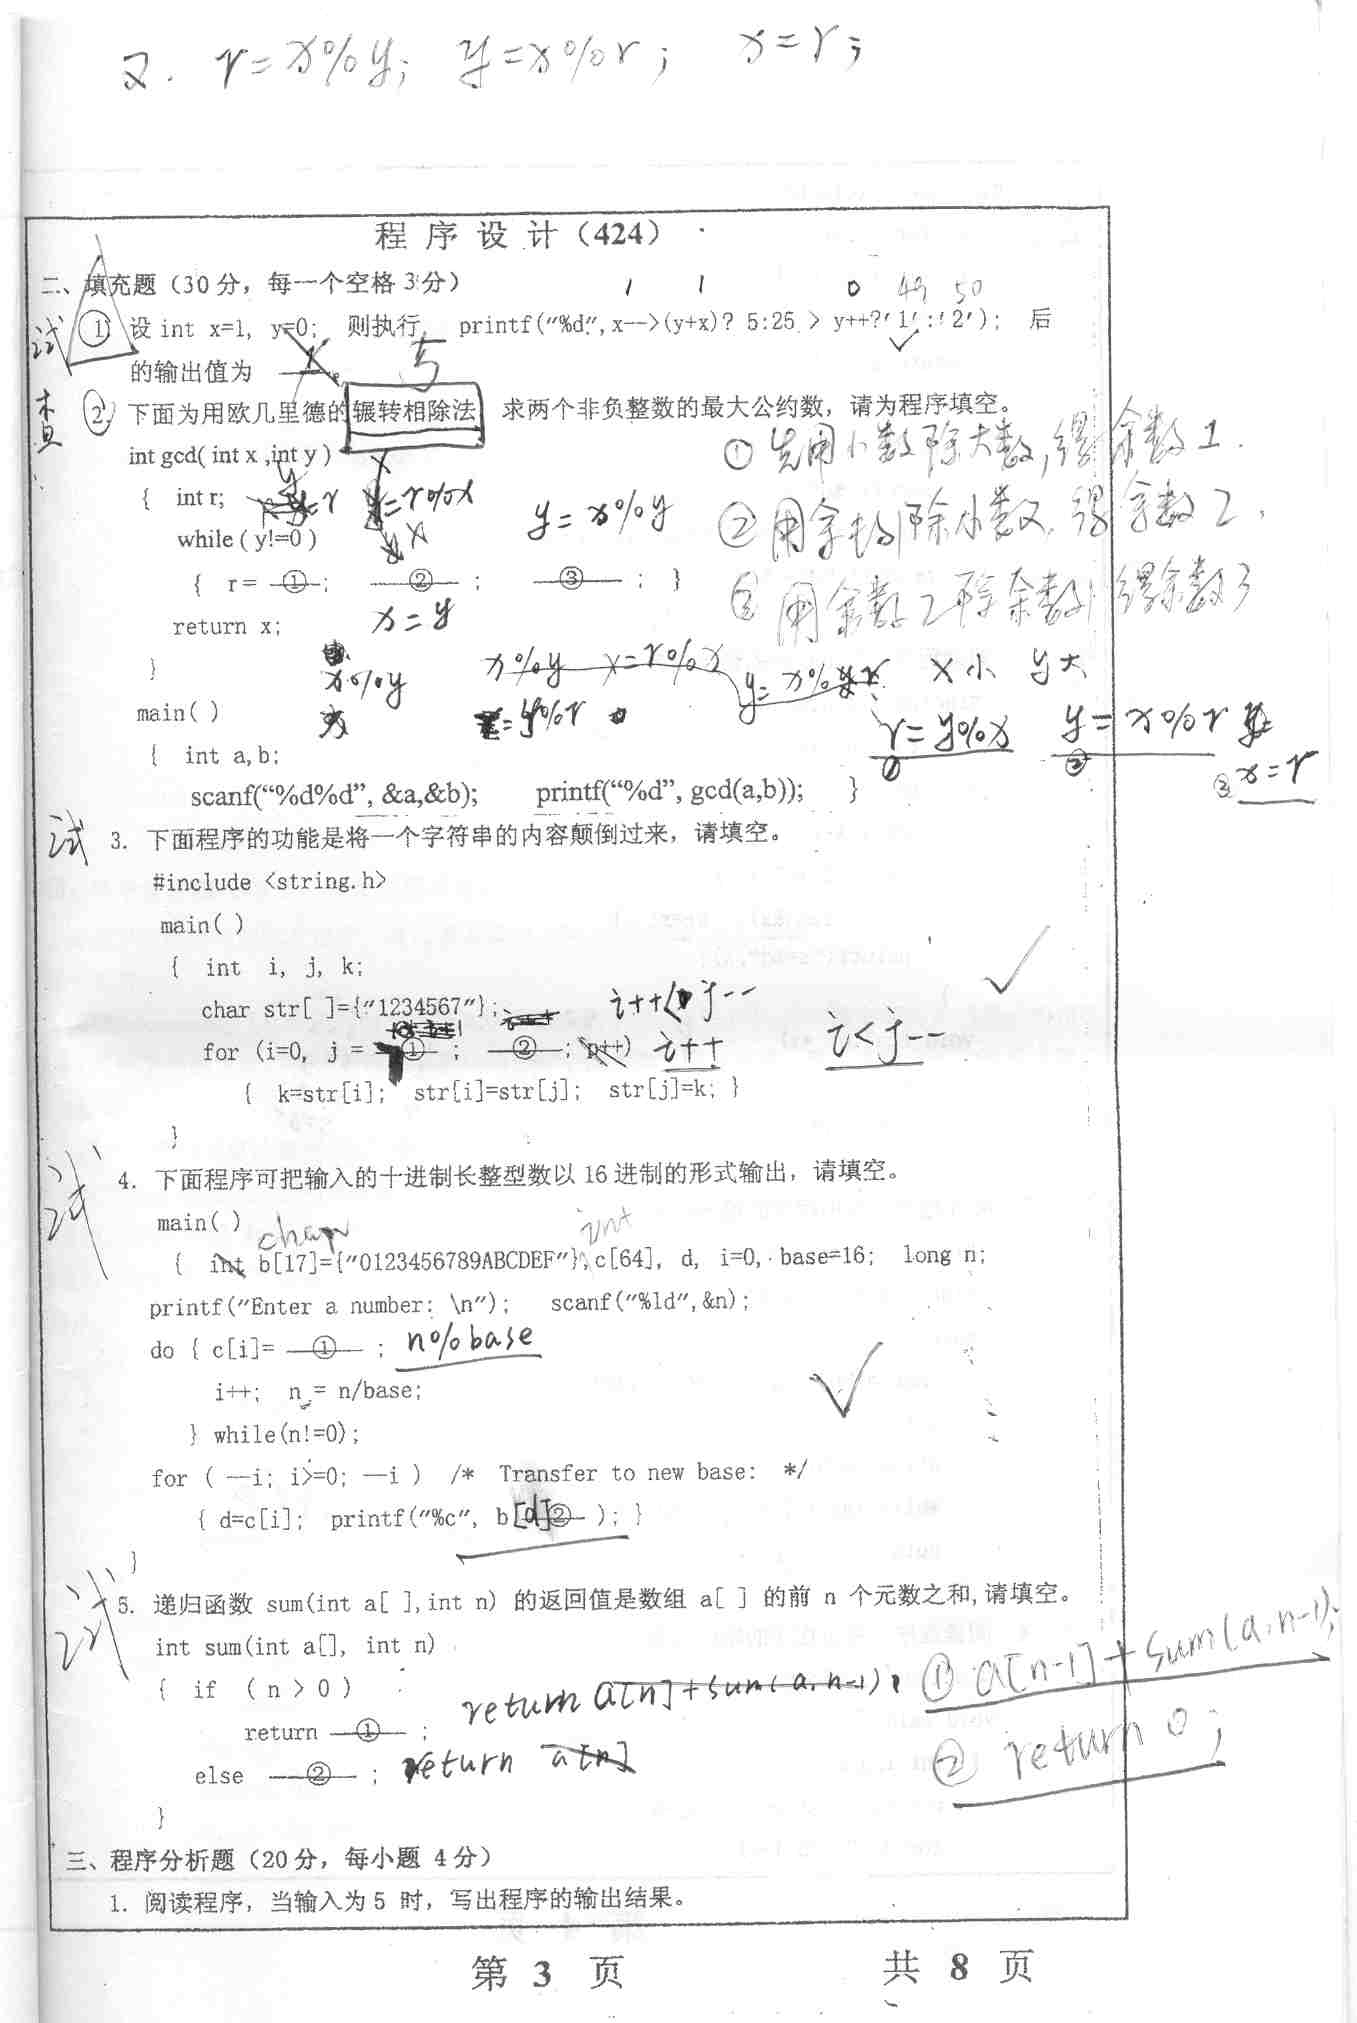 2. r=x%y; y=x%r; x=r;
程 序 设 计（424）
二、填充题（30 分，每一个空格 3 分）
1 1 0 49 50
试 1. 设 int x=1, y=0; 则执行 printf("%d", x-->(y+x)? 5:25 > y++?'1':'2'); 后
的输出值为 5
查 2. 下面为用欧几里德的辗转相除法 求两个非负整数的最大公约数，请为程序填空。
int gcd( int x ,int y )
① 先用小数除大数，得余数1.
{ int r;
y=x%y
② 用余数除小数，得余数2,
while ( y!=0 )
{ r= ① ; ② ; ③ ; }
③ 用余数2除余数1得余数3
return x; x=y
}
x%y x%y x=r%x x小 y大
main( ) =y%r r=y%x ① y=x%r ②
{ int a,b; ③ x=r
scanf("%d%d", &a,&b); printf("%d", gcd(a,b)); }
试 3. 下面程序的功能是将一个字符串的内容颠倒过来，请填空。
#include <string.h>
main( )
{ int i, j, k;
char str[ ]={"1234567"}; i++ j--
for (i=0, j = ① ; ② ; ) i++ i<j--
{ k=str[i]; str[i]=str[j]; str[j]=k; }
}
试 4. 下面程序可把输入的十进制长整型数以 16 进制的形式输出，请填空。
main( )
char int
{ int b[17]={"0123456789ABCDEF"}, c[64], d, i=0, base=16; long n;
printf("Enter a number: \n"); scanf("%ld",&n);
do { c[i]= ① ; n%base
i++; n = n/base;
} while(n!=0);
for ( —i; i>=0; —i ) /* Transfer to new base: */
{ d=c[i]; printf("%c", b[d]② ); }
}
试 5. 递归函数 sum(int a[ ],int n) 的返回值是数组 a[ ] 的前 n 个元数之和,请填空。
int sum(int a[], int n)
{ if ( n > 0 ) return a[n]+sum(a,n-1); ① a[n-1]+sum(a,n-1);
return ① ;
else ② ; return a[n] ② return 0;
}
三、程序分析题（20 分，每小题 4 分）
1. 阅读程序，当输入为 5 时，写出程序的输出结果。
第 3 页 共 8 页